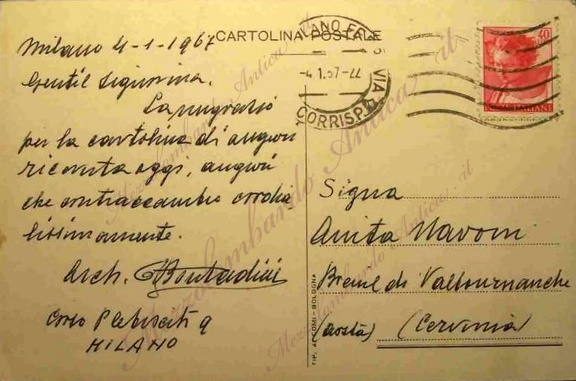 CARTOLINA POSTALE
Milano 4-1-1967
Gentil Signorina.
La ringrazio
per la cartolina di auguri
ricevuta oggi, auguri
che contraccambio cordia
lissimamente.
Arch. Bontadini
Corso Plebisciti 9
MILANO
MILANO
4.1.67-22
CORRISP
VIA
40
ITALIANE
Sig.na
Anita Navoni
Breuil di Valtournanche
(Aosta) (Cervinia)
TIP. BOLOGNA
Mezzolombardo Antica .it